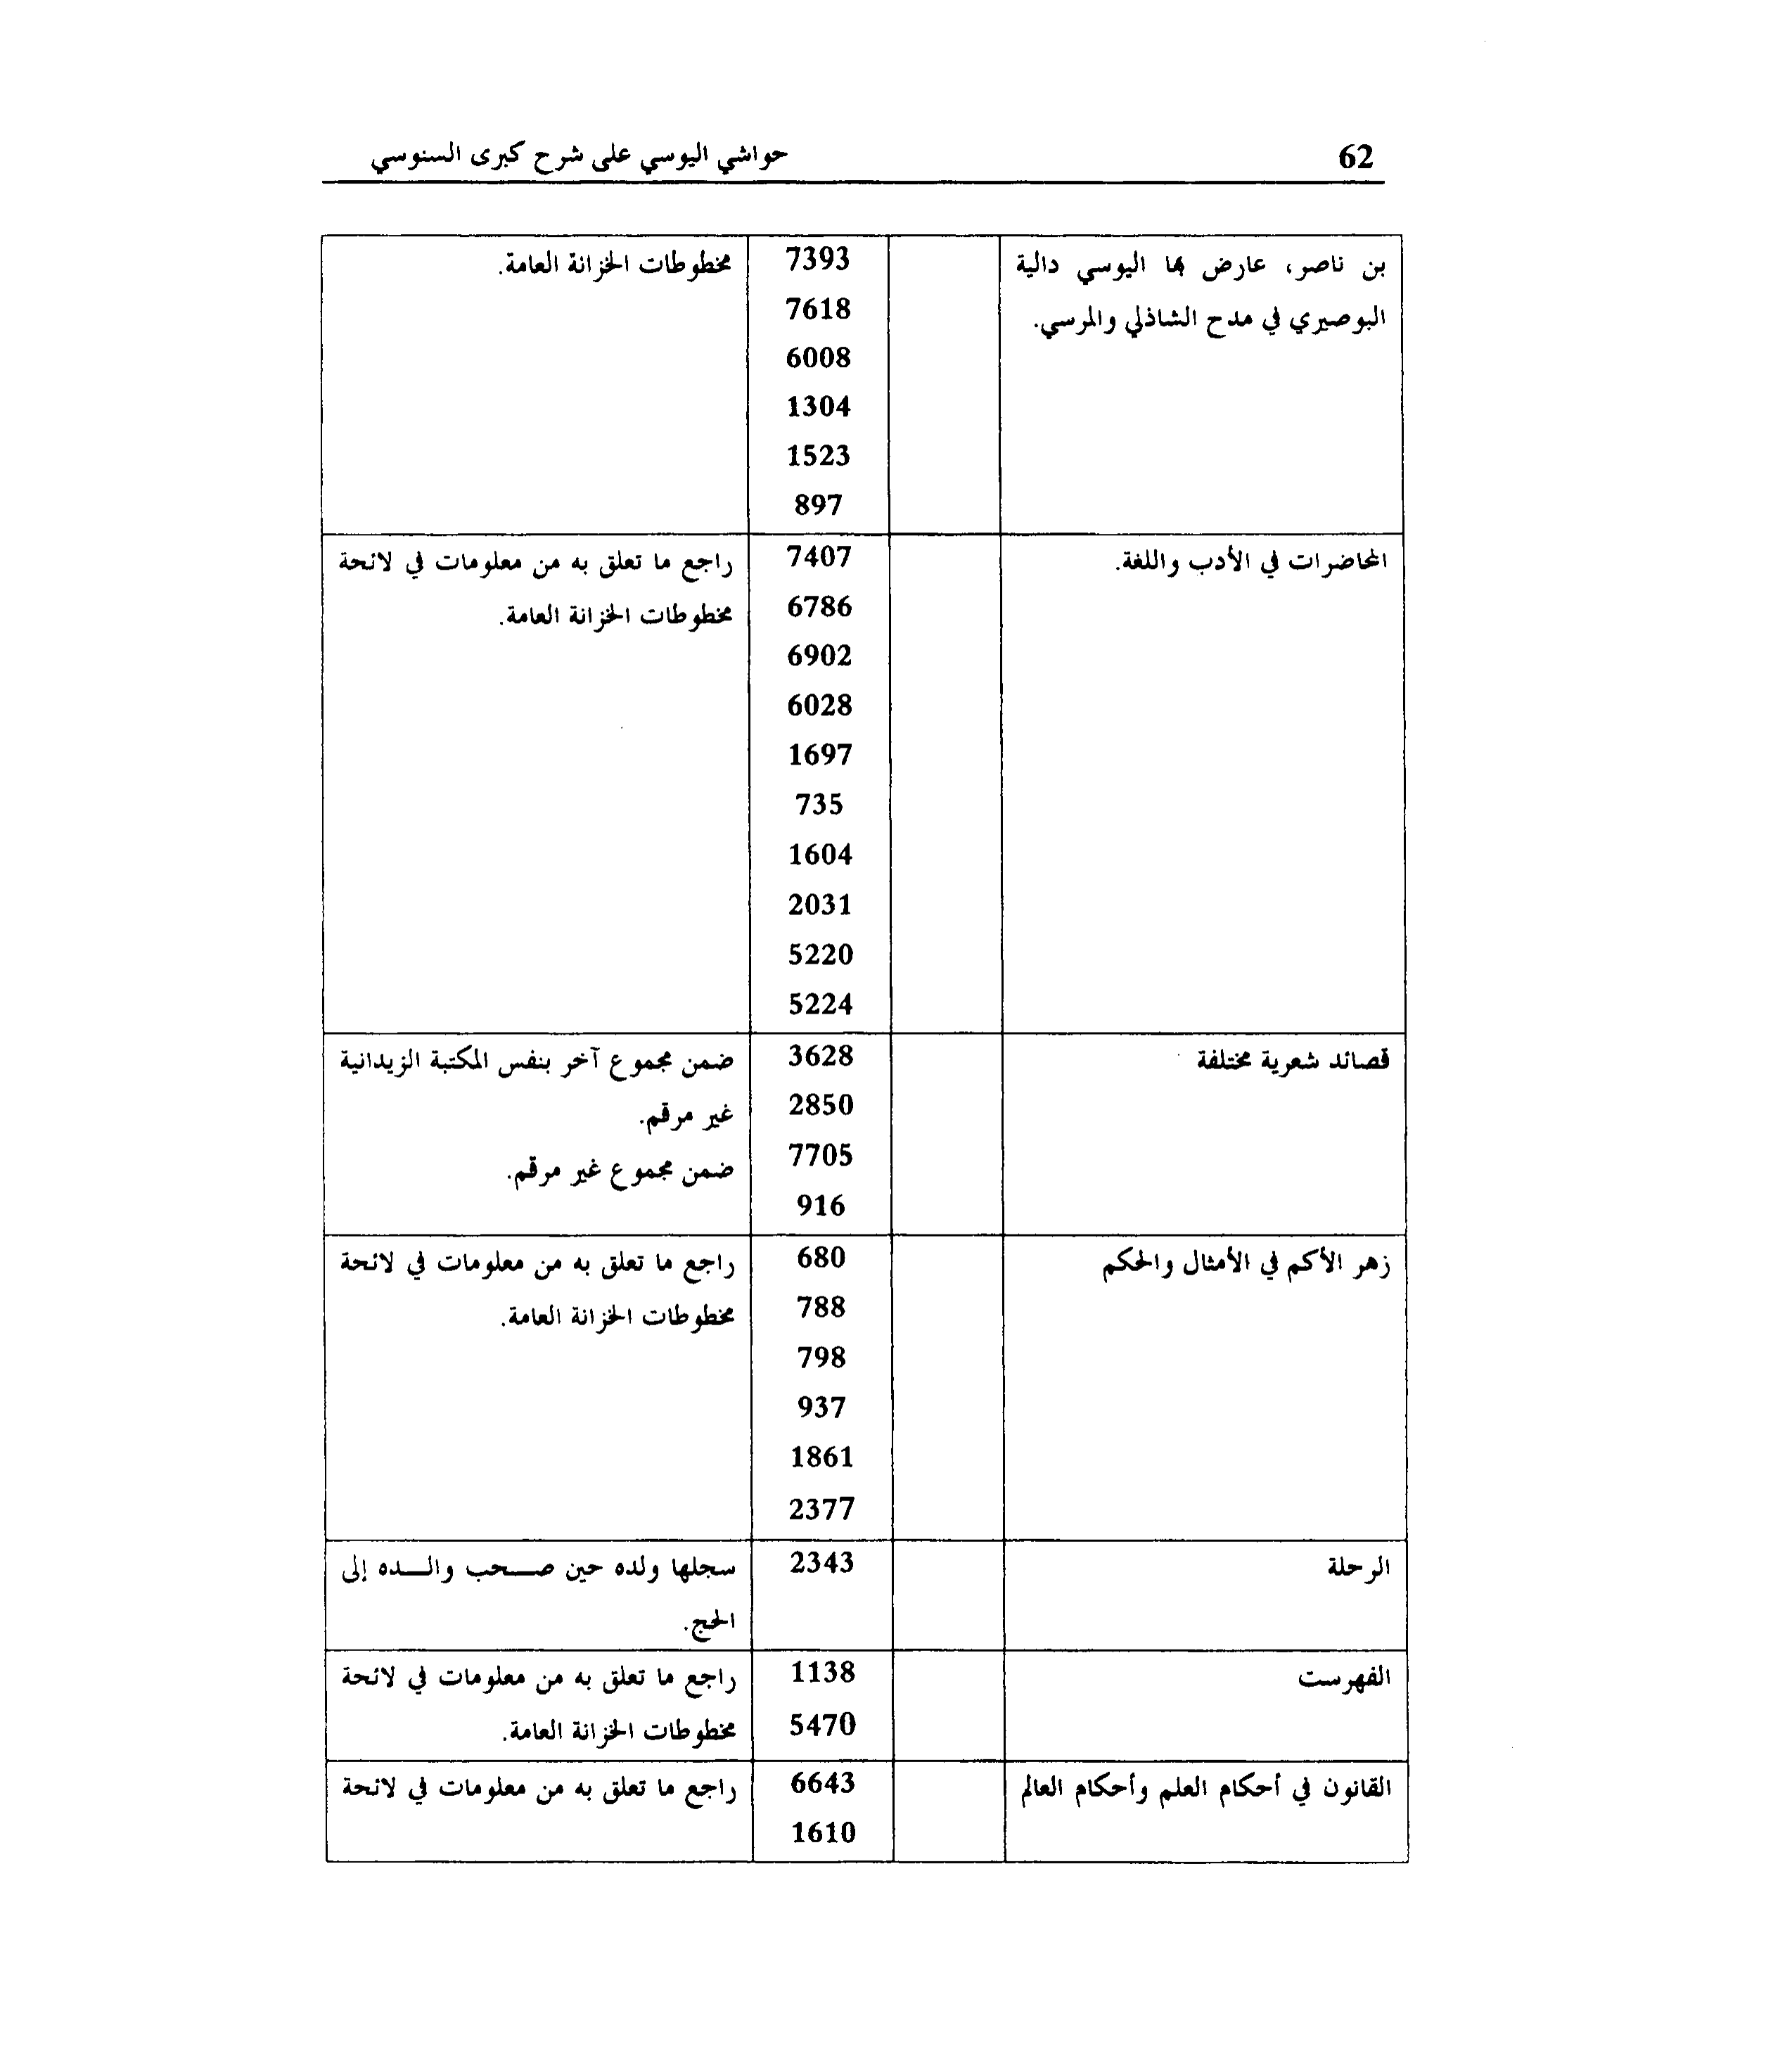 62
حواشي اليوسي على شرح كبرى السنوسي
بن ناصر، عارض بها اليوسي دالية
البوصيري في مدح الشاذلي والمرسي.
7393
7618
6008
1304
1523
897
مخطوطات الخزانة العامة.
المحاضرات في الأدب واللغة.
7407
6786
6902
6028
1697
735
1604
2031
5220
5224
راجع ما تعلق به من معلومات في لائحة
مخطوطات الخزانة العامة.
قصائد شعرية مختلفة
3628
2850
7705
916
ضمن مجموع آخر بنفس المكتبة الزيدانية
غير مرقم.
ضمن مجموع غير مرقم.
زهر الأكم في الأمثال والحكم
680
788
798
937
1861
2377
راجع ما تعلق به من معلومات في لائحة
مخطوطات الخزانة العامة.
الرحلة
2343
سجلها ولده حين صـحب والـده إلى
الحج.
الفهرست
1138
5470
راجع ما تعلق به من معلومات في لائحة
مخطوطات الخزانة العامة.
القانون في أحكام العلم وأحكام العالم
6643
1610
راجع ما تعلق به من معلومات في لائحة